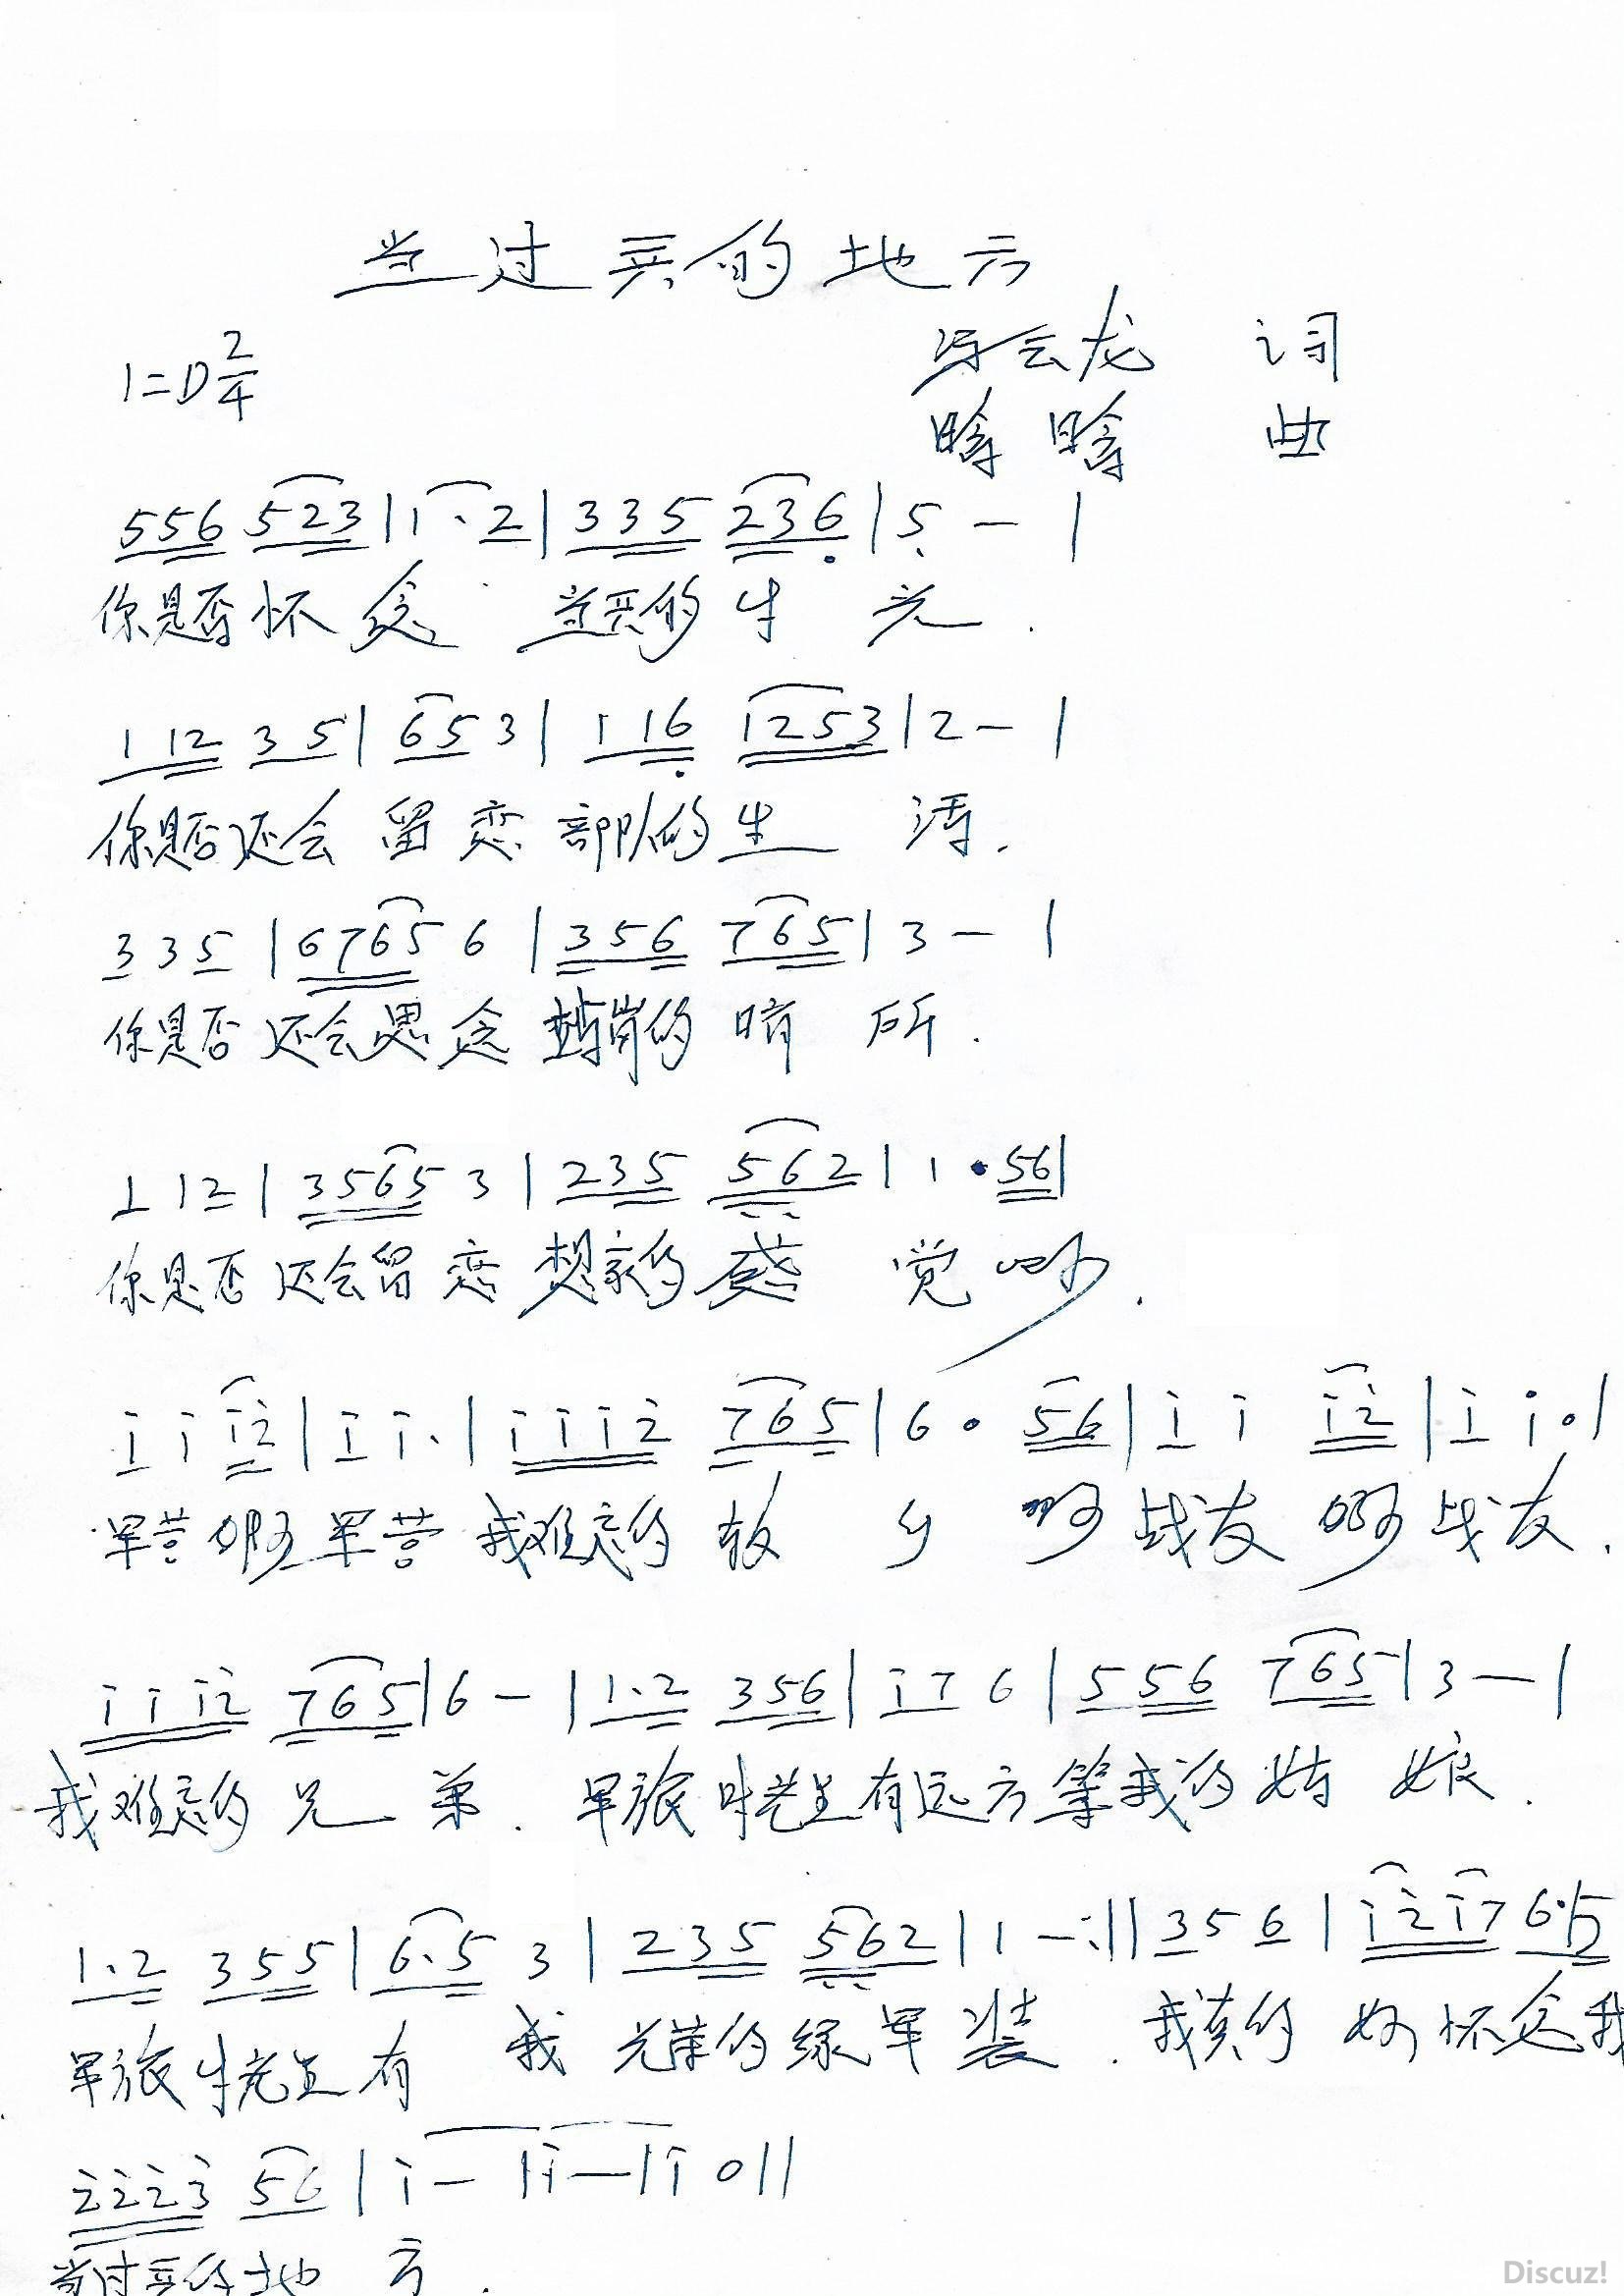 当过兵的地方
1=D 2/4
冯云龙 词
晗晗 曲
556 523 | 1·2 | 335 236 | 5 — |
你是否怀念 当兵的时光.
1 12 35 | 65 3 | 1 16 1253 | 2 — |
你是否还会留恋部队的生活.
3 3 5 | 6765 6 | 356 765 | 3 — |
你是否还会思念 站岗的哨所.
1 1 2 | 3565 3 | 235 562 | 1 · 56 |
你是否还会留恋 想家的感觉 啊.
i i i2 | i i · | i i i 2 765 | 6 · 56 | i i i2 | i i · |
军营啊军营 我难忘的故乡 啊战友啊战友.
i i i2 765 | 6 — | 1·2 356 | i7 6 | 556 765 | 3 — |
我难忘的兄弟. 军旅时光里有远方等我的姑娘.
1·2 355 | 6·5 3 | 235 562 | 1 — :|| 3 5 6 | i2i7 6·5
军旅时光里有 我光荣的绿军装. 我真的好怀念我
2223 56 | i — | i — | i 0 ||
当过兵的地方.
Discuz!